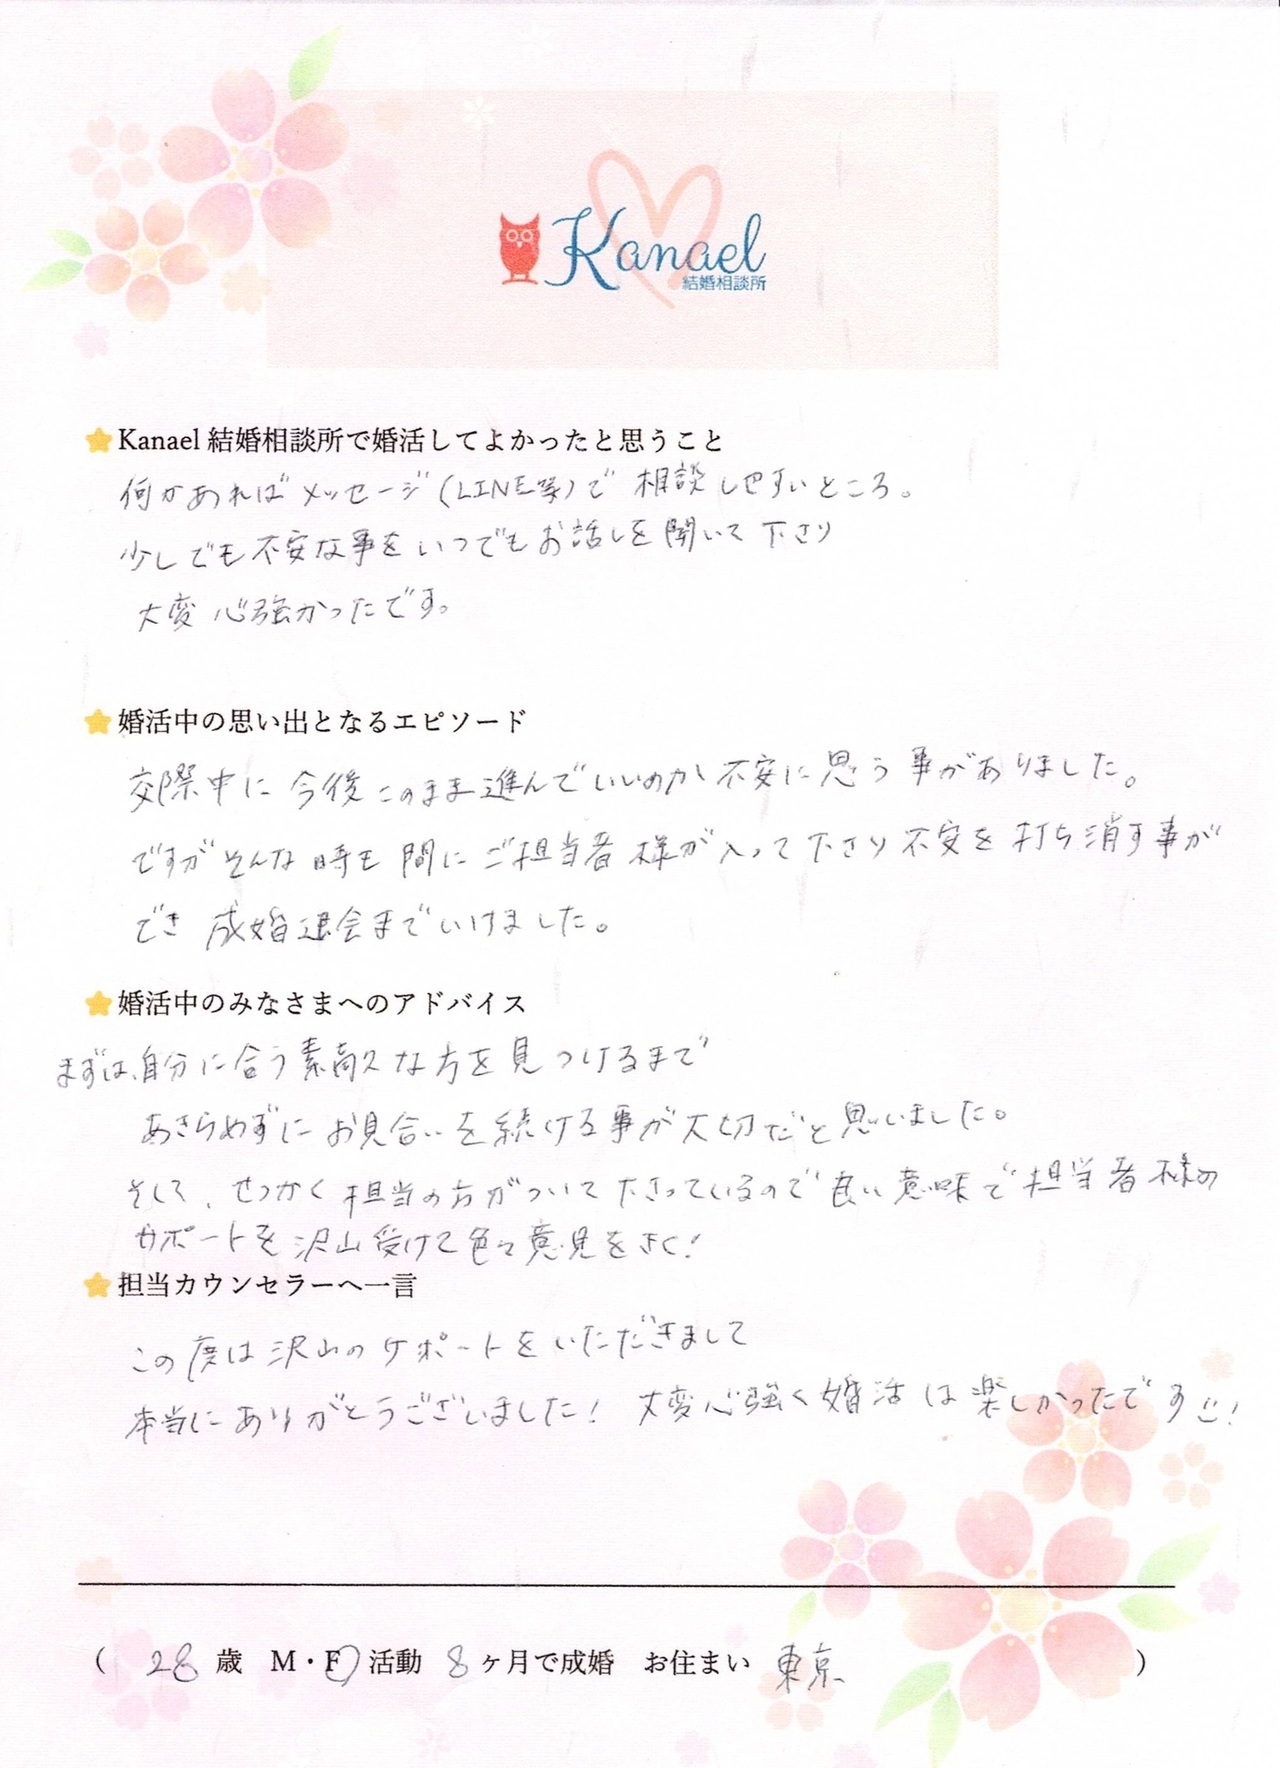 Kanael
結婚相談所
Kanael 結婚相談所で婚活してよかったと思うこと
何かあればメッセージ(LINE等)で相談しやすいところ。
少しでも不安な事をいつでもお話しを聞いて下さり
大変心強かったです。
婚活中の思い出となるエピソード
交際中に今後このまま進んでいいのか不安に思う事がありました。
ですがそんな時も間にご担当者様が入って下さり不安を打ち消す事が
でき成婚退会までいけました。
婚活中のみなさまへのアドバイス
まずは、自分に合う素敵な方を見つけるまで
あきらめずにお見合いを続ける事が大切だと思いました。
そして、せっかく担当の方がついて下さっているので良い意味で担当者様の
サポートを沢山受けて色々意見をきく!
担当カウンセラーへ一言
この度は沢山のサポートをいただきまして
本当にありがとうございました! 大変心強く婚活は楽しかったです!
( 28 歳 M・F 活動 8 ヶ月で成婚 お住まい 東京 )